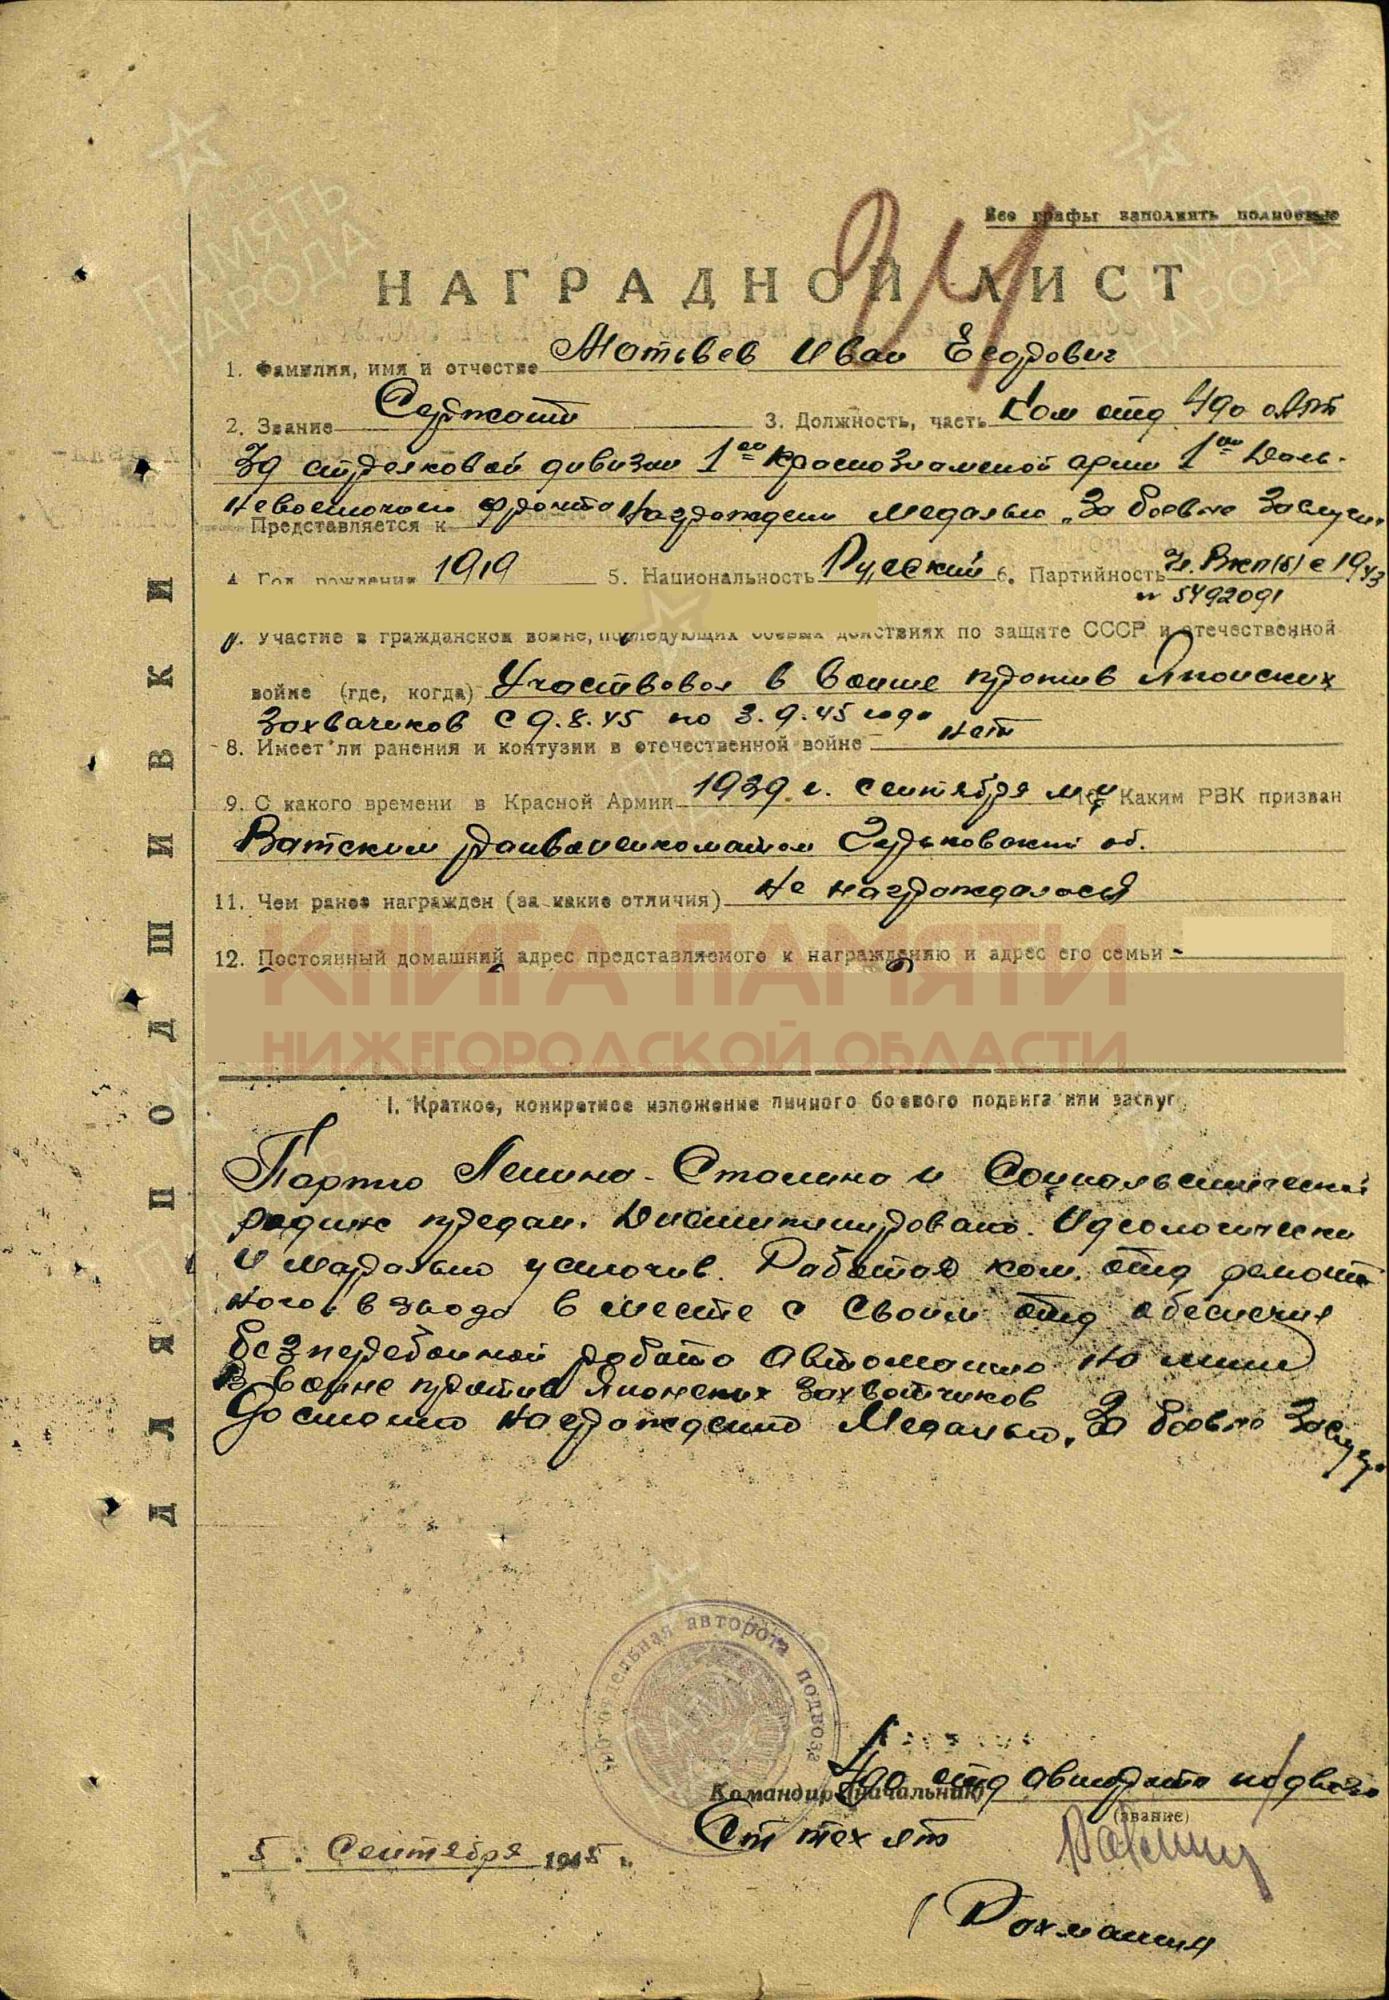 Все графы заполнять полностью
НАГРАДНОЙ ЛИСТ
24
1. Фамилия, имя и отчество Матьвев Иван Егорович
2. Звание Сержант 3. Должность, часть Ком отд 490 оАПт
39 стрелковой дивизии 1ой Краснознаменой армии 1го Даль-
невосточого фронта Награждени медалью „За боевые Заслуги"
Представляется к
4. Год рождения 1919 5. Национальность Русский 6. Партийность Чл. Вкп(б) с 1943
№ 5492091
7. Участие в гражданской войне, последующих боевых действиях по защите СССР и отечественной
войне (где, когда) Участвовал в войне против Японских
Захвачиков с 9.8.45 по 3.9.45 года
8. Имеет ли ранения и контузии в отечественной войне нет
9. С какого времени в Красной Армии 1939 г. сентября м-ц 10. Каким РВК призван
Ватским райваненкоматом Горьковский об.
11. Чем ранее награжден (за какие отличия) Не награждался
12. Постоянный домашний адрес представляемого к награждению и адрес его семьи -
КНИГА ПАМЯТИ
НИЖЕГОРОДСКОЙ ОБЛАСТИ
I. Краткое, конкретное изложение личного боевого подвига или заслуг
Партии Ленина - Сталина и Социалистический
родине предан. Дисциплинирован. Идеологически
и марально усточив. Работая ком. отд ремонт
ного взвода в месте с своим отд обеспечил
безперебойной работа автомашин на линии
В войне против Японских захватчиков
Достоин награждению Медалью „За боевые Заслуги
ДЛЯ ПОДШИВКИ
отдельная авторота подвоза
Командир (начальник) 490 отд автороты подвоза
(звание)
Ст тех л-т
„5. Сентября 1945 г.
(Рахманин
ПАМЯТЬ НАРОДА